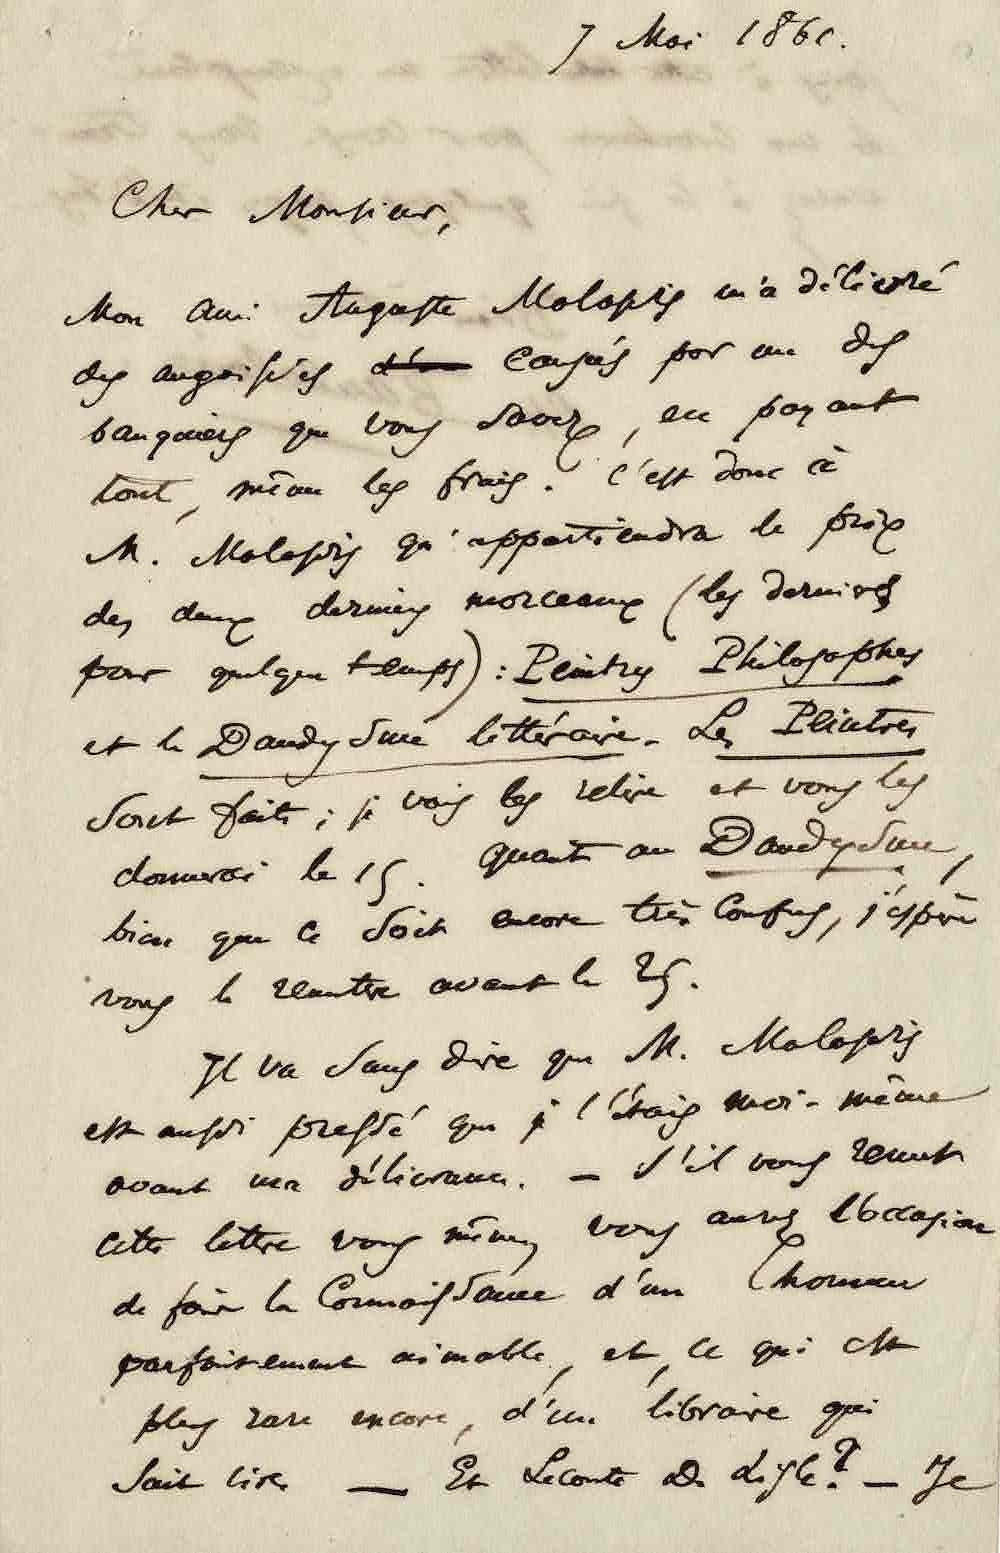 7 Mai 1861.
Cher Monsieur,
Mon ami Auguste Malassis m'a délivré
des angoisses causées par un des
banquiers que vous savez, en payant
tout, même les frais. C'est donc à
M. Malassis qu'appartiendra le prix
des deux derniers morceaux (les derniers
pour quelque temps) : Peintres Philosophes
et le Dandysme littéraire. Les Peintres
sont faits ; je vais les relire et vous les
donnerai le 15. Quant au Dandysme,
bien que ce soit encore très confus, j'espère
vous le remettre avant le 25.
Il va sans dire que M. Malassis
est aussi pressé que je l'étais moi-même
avant ma délivrance. — S'il vous remet
cette lettre vous même, vous aurez l'occasion
de faire la connaissance d'un homme
parfaitement aimable, et, ce qui est
plus rare encore, d'un libraire qui
sait lire — Et Leconte De Lisle ? — Je